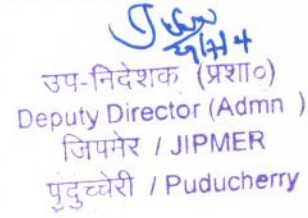 उप-निदेशक (प्रशा०)
Deputy Director (Admn )
जिपमेर / JIPMER
पुदुच्चेरी / Puducherry